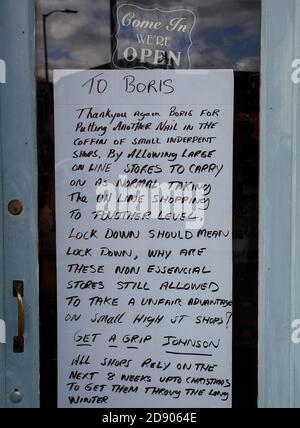 Come In
WE'RE
OPEN
TO BORIS
Thankyou Again BORIS FOR
Putting Another Nail IN THE
COFFIN OF SMALL INDERPENT
SHOPS, BY ALLOWING LARGE
ON LINE STORES TO CARRY
ON AS NORMAL TAKING
THE ON LINE SHOPPING
TO ANOTHER LEVEL,
LOCK DOWN SHOULD MEAN
LOCK DOWN, WHY ARE
THESE NON ESSENCIAL
STORES STILL ALLOWED
TO TAKE A UNFAIR ADVANTAGE
ON SMALL HIGH ST SHOPS?
GET A GRIP JOHNSON
ALL SHOPS RELY ON THE
NEXT 8 WEEKS UPTO CHRISTMAS
TO GET THEM THROUG THE LONG
WINTER
alamy
a
a
Image ID: 2D9064E
www.alamy.com